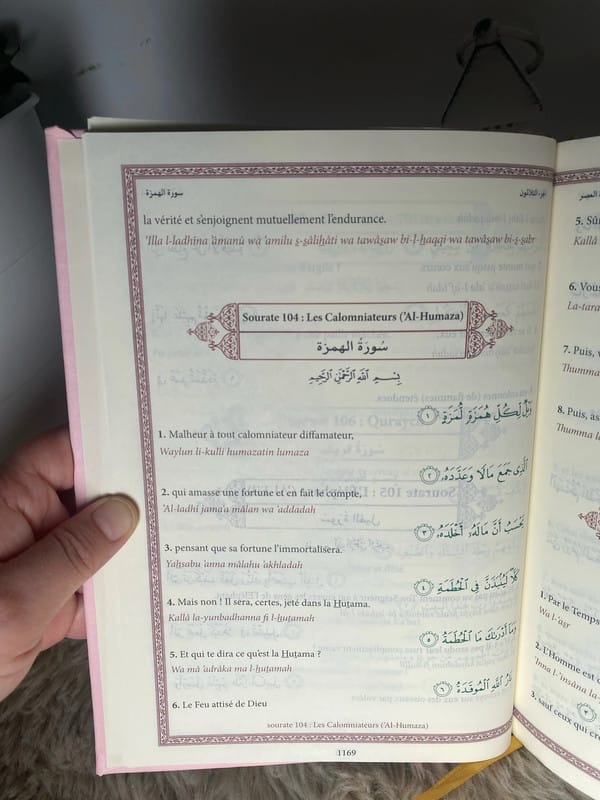 سورة الهمزة
الجزء الثلاثون
la vérité et s'enjoignent mutuellement l'endurance.
'Illa l-ladhîna 'âmanû wa 'amilu ṣ-ṣâliḥâti wa tawâṣaw bi-l-ḥaqqi wa tawâṣaw bi-ṣ-ṣabr
Sourate 104 : Les Calomniateurs ('Al-Humaza)
سُورَةُ الهمزة
بِسْمِ اللَّهِ الرَّحْمَٰنِ الرَّحِيمِ
وَيْلٌ لِّكُلِّ هُمَزَةٍ لُّمَزَةٍ ١
1. Malheur à tout calomniateur diffamateur,
Waylun li-kulli humazatin lumaza
ٱلَّذِى جَمَعَ مَالًا وَعَدَّدَهُۥ ٢
2. qui amasse une fortune et en fait le compte,
'Al-ladhî jama'a mâlan wa 'addadah
يَحْسَبُ أَنَّ مَالَهُۥٓ أَخْلَدَهُۥ ٣
3. pensant que sa fortune l'immortalisera.
Yaḥsabu 'anna mâlahu 'akhladah
كَلَّا لَيُنۢبَذَنَّ فِى ٱلْحُطَمَةِ ٤
4. Mais non ! Il sera, certes, jeté dans la Ḥuṭama.
Kallâ la-yunbadhanna fi l-ḥuṭamah
وَمَآ أَدْرَىٰكَ مَا ٱلْحُطَمَةُ ٥
5. Et qui te dira ce qu'est la Ḥuṭama ?
Wa mâ 'adrâka ma l-ḥuṭamah
نَارُ ٱللَّهِ ٱلْمُوقَدَةُ ٦
6. Le Feu attisé de Dieu
sourate 104 : Les Calomniateurs ('Al-Humaza)
1169
سورة العصر
5. Sûr
Kallâ
6. Vous
La-tara
7. Puis,
Thumma
8. Puis, as
Thumma l
1. Par le Temps
Wa l-'aṣr
2. l'Homme est
'Inna l-'insâna la-
3. sauf ceux qui cr